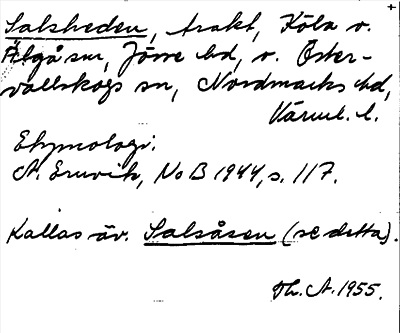 Salsheden, trakt, Köla o.
Älgå snr, Jösse hd, o. Öster-
vallskogs sn, Nordmarks hd,
Värml. l.
Etymologi:
A. Ernvik, NoB 1944, s. 117.
Kallas äv. Salsåsen (se detta).
Th. A. 1955.